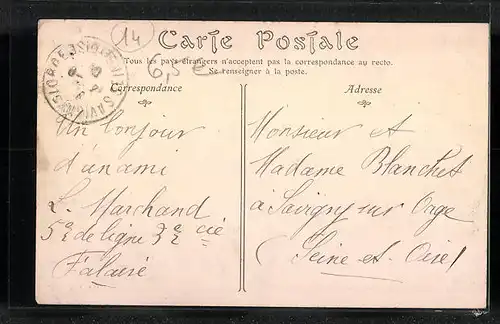 14
Carte Postale
Tous les pays étrangers n'acceptent pas la correspondance au recto.
Se renseigner à la poste.
6,5 €
Correspondance
Adresse
Un bonjour
d'un ami
L. Marchand
5e de ligne 3e cie
Falaise
Monsieur et
Madame Blanchet
à Savigny sur Orge
(Seine-et-Oise)